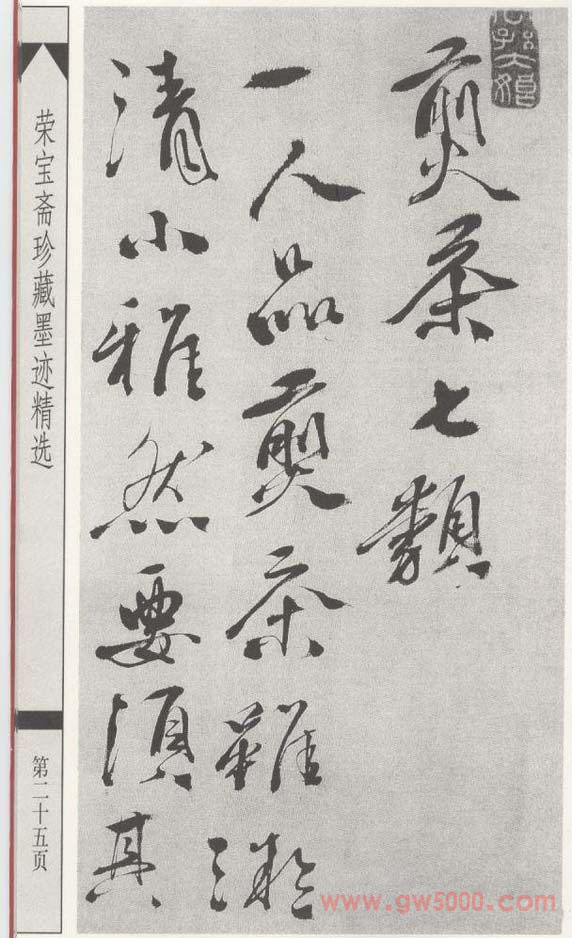 煎茶七類
一人品煎茶雖
清小雅然要須其
荣宝斋珍藏墨迹精选
第二十五页
www.gw5000.com